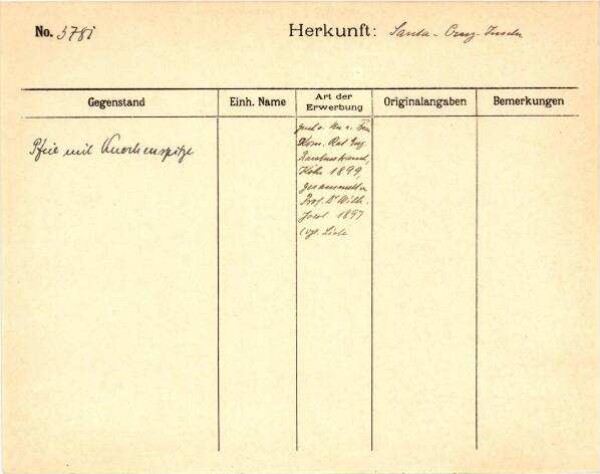 No. 3781 Herkunft: Santa-Cruz-Inseln
Gegenstand Einh. Name Art der Erwerbung Originalangaben Bemerkungen
Pfeil mit Knochenspitze
Gesch. v. Hr. u. Frau
Kom. Rat Eug.
Rautenstrauch,
Köln 1899,
gesammelt v.
Prof. Dr Wilh.
Joest 1897
(vgl. Liste